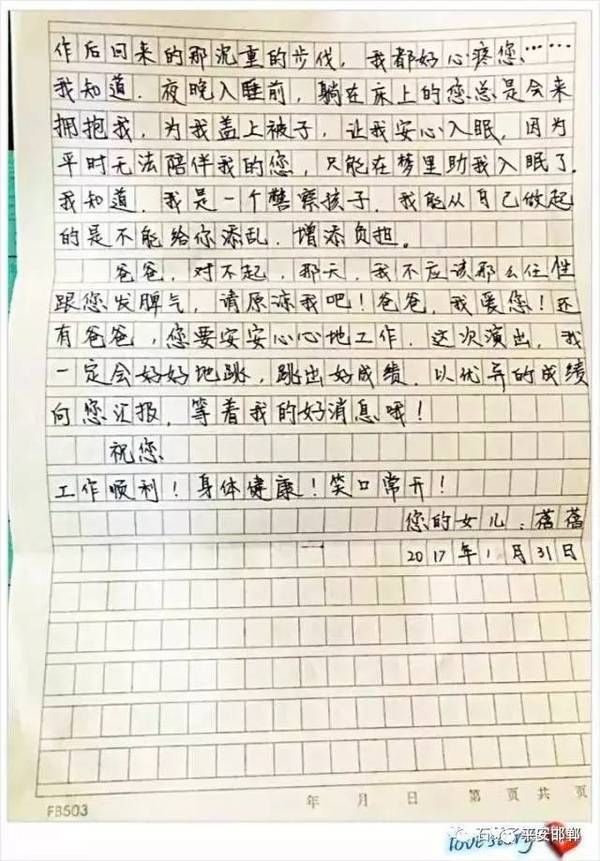 作后回来的那沉重的步伐，我都好心疼您……
我知道．夜晚入睡前，躺在床上的您总是会来
拥抱我，为我盖上被子，让我安心入眠，因为
平时无法陪伴我的您，只能在梦里助我入眠了．
我知道．我是一个警察孩子．我能从自己做起
的是不能给你添乱．增添负担。
爸爸，对不起，那天．我不应该那么任性
跟您发脾气，请原谅我吧！爸爸，我爱您！还
有爸爸，您要安安心心地工作．这次演出，我
一定会好好地跳，跳出好成绩．以优异的成绩
向您汇报，等着我的好消息哦！
祝您
工作顺利！身体健康！笑口常开！
您的女儿：蓓蓓
2017年1月31日
FB503 年 月 日 第 页 共 页
平安邯郸
love story